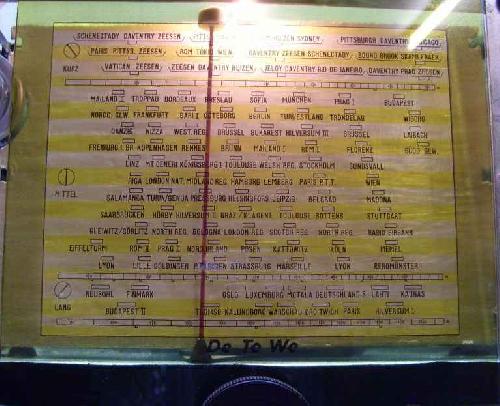 SCHENECTADY DAVENTRY ZEESEN HUIZEN SYDNEY PITTSBURGH DAVENTRY CHICAGO
PARIS PITTSB. ZEESEN ROM TOKIO WIEN DAVENTRY ZEESEN SCHENECTADY BOUND BROOK
KURZ VATICAN ZEESEN ZEESEN DAVENTRY HUIZEN DAVENTRY RIO DE JANEIRO DAVENTRY PRAG ZEESEN
MAILAND II TROPPAU BORDEAUX BRESLAU SOFIA MÜNCHEN PRAG I BUDAPEST
NORDD. GLW. FRANKFURT BARI GÖTEBORG BERLIN TURM ESTLAND TRÖNDELAG WIBORG
DANZIG NIZZA WEST. REG. BRÜSSEL BUKAREST HILVERSUM II BRÜSSEL LAIBACH
FREIBURG KOPENHAGEN RENNES BRÜNN MAILAND I BERN I FLORENZ
LINZ MT. CENERI KÖNIGSBERG I TOULOUSE WELSH REG. STOCKHOLM SUNDSVALL
MITTEL RIGA LONDON NAT. MIDLAND REG. HAMBURG LEMBERG PARIS P.T.T. WIEN
SALAMANCA TURIN/GENUA PRESSBURG HELSINGFORS LEIPZIG BELGRAD MADONA
SAARBRÜCKEN HÖRBY HILVERSUM II GRAZ/KLAGENF. TOULOUSE SOTTENS STUTTGART
GLEIWITZ/GÖRLITZ NORTH REG. BOLOGNA LONDON REG. SCOTISH REG. NORTH REG.
EIFFELTURM ROM II PRAG II NORDIRLAND POSEN KATTOWITZ KÖLN MEMEL
LYON LILLE GOLDINGEN STRASSBURG MARSEILLE LYON BEROMÜNSTER
NEUBORG FINMARK OSLO LUXEMBURG MOTALA DEUTSCHLAND-S. LAHTI KAUNAS
LANG BUDAPEST II TROMSÖ KALUNDBORG WARSCHAU DROITWICH PARIS HILVERSUM I
De Te We